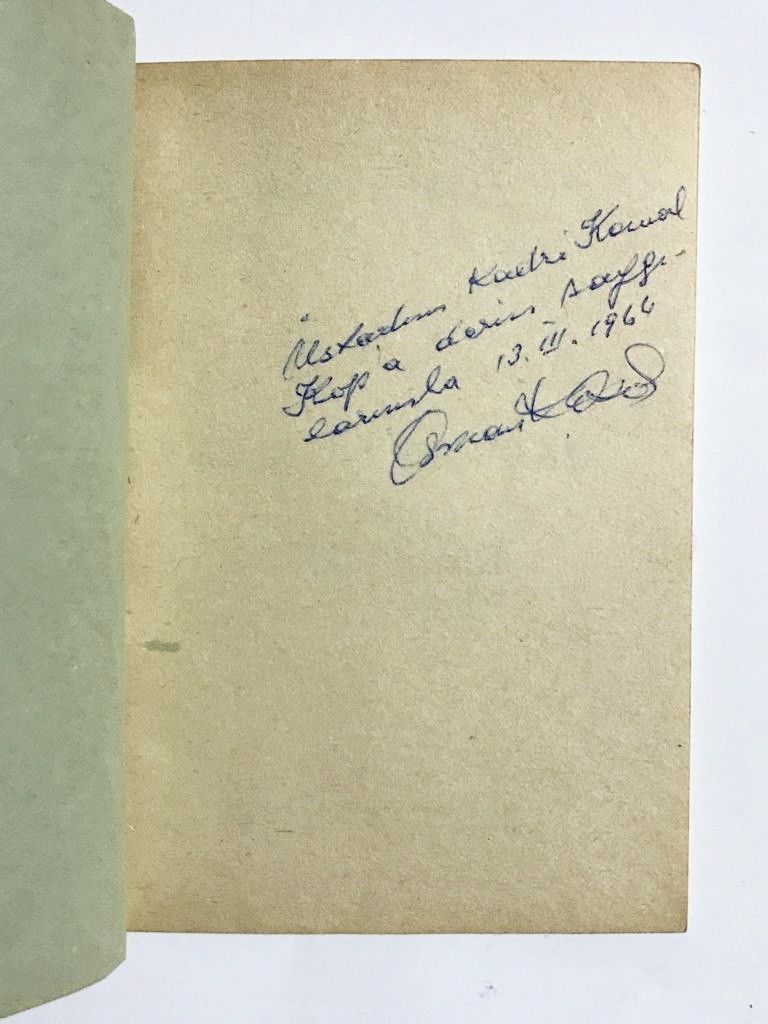 Üstadım Kadri Kemal
Kop'a derin saygı-
larımla 13.III.1964
Osman